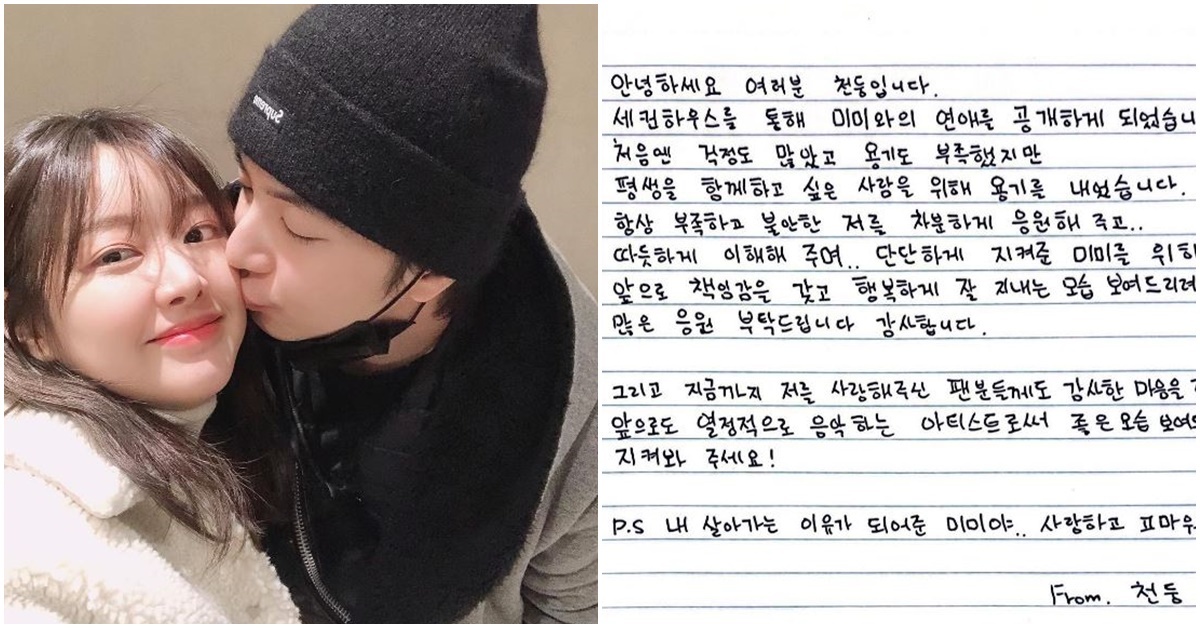 Supreme
안녕하세요 여러분 천둥입니다.
세컨하우스를 통해 미미와의 연애를 공개하게 되었습니
처음엔 걱정도 많았고 용기도 부족했지만
평생을 함께하고 싶은 사람을 위해 용기를 내었습니다.
항상 부족하고 불안한 저를 차분하게 응원해 주고..
따듯하게 이해해 주며.. 단단하게 지켜준 미미를 위하
앞으로 책임감을 갖고 행복하게 잘 지내는 모습 보여드리려
많은 응원 부탁드립니다 감사합니다.
그리고 지금까지 저를 사랑해주신 팬분들께도 감사한 마음을
앞으로도 열정적으로 음악하는 아티스트로써 좋은모습 보여
지켜봐 주세요!
P.S 내 살아가는 이유가 되어준 미미야.. 사랑하고 고마워
From. 천둥